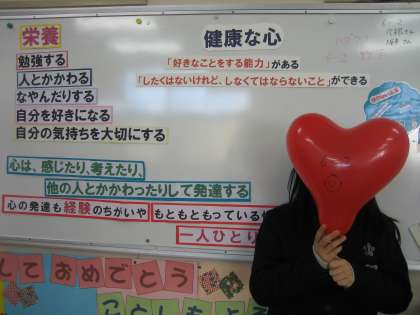 栄養
勉強する
人とかかわる
なやんだりする
自分を好きになる
自分の気持ちを大切にする
健康な心
「好きなことをする能力」がある
「したくはないけれど、しなくてはならないこと」ができる
心は、感じたり、考えたり、
他の人とかかわったりして発達する
心の発達も経験のちがいや
もともともっている
一人ひとり
しておめでとう
ことしもよろ